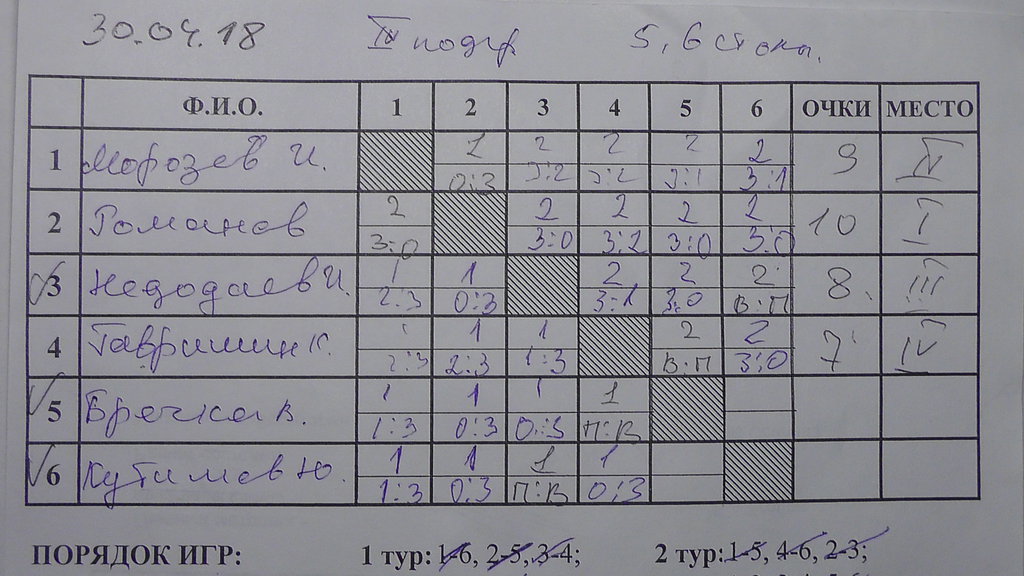 30.04.18 IV подгр 5, 6 столы.
Ф.И.О. 1 2 3 4 5 6 ОЧКИ МЕСТО
1 Морозов И. 1 2 2 2 2 9
0:3 3:2 3:2 3:1 3:1
2 Романов 2 2 2 2 2 10 I
3:0 3:0 3:2 3:0 3:0
3 Недодаев И. 1 1 2 2 2 8 III
2:3 0:3 3:1 3:0 В:П
4 Гавришин К. 1 1 1 2 2 7 IV
2:3 2:3 1:3 В:П 3:0
5 Бречка В. 1 1 1 1
1:3 0:3 0:3 П:В
6 Кутимов Ю. 1 1 1 1
1:3 0:3 П:В 0:3
ПОРЯДОК ИГР: 1 тур: 1-6, 2-5, 3-4; 2 тур: 1-5, 4-6, 2-3;